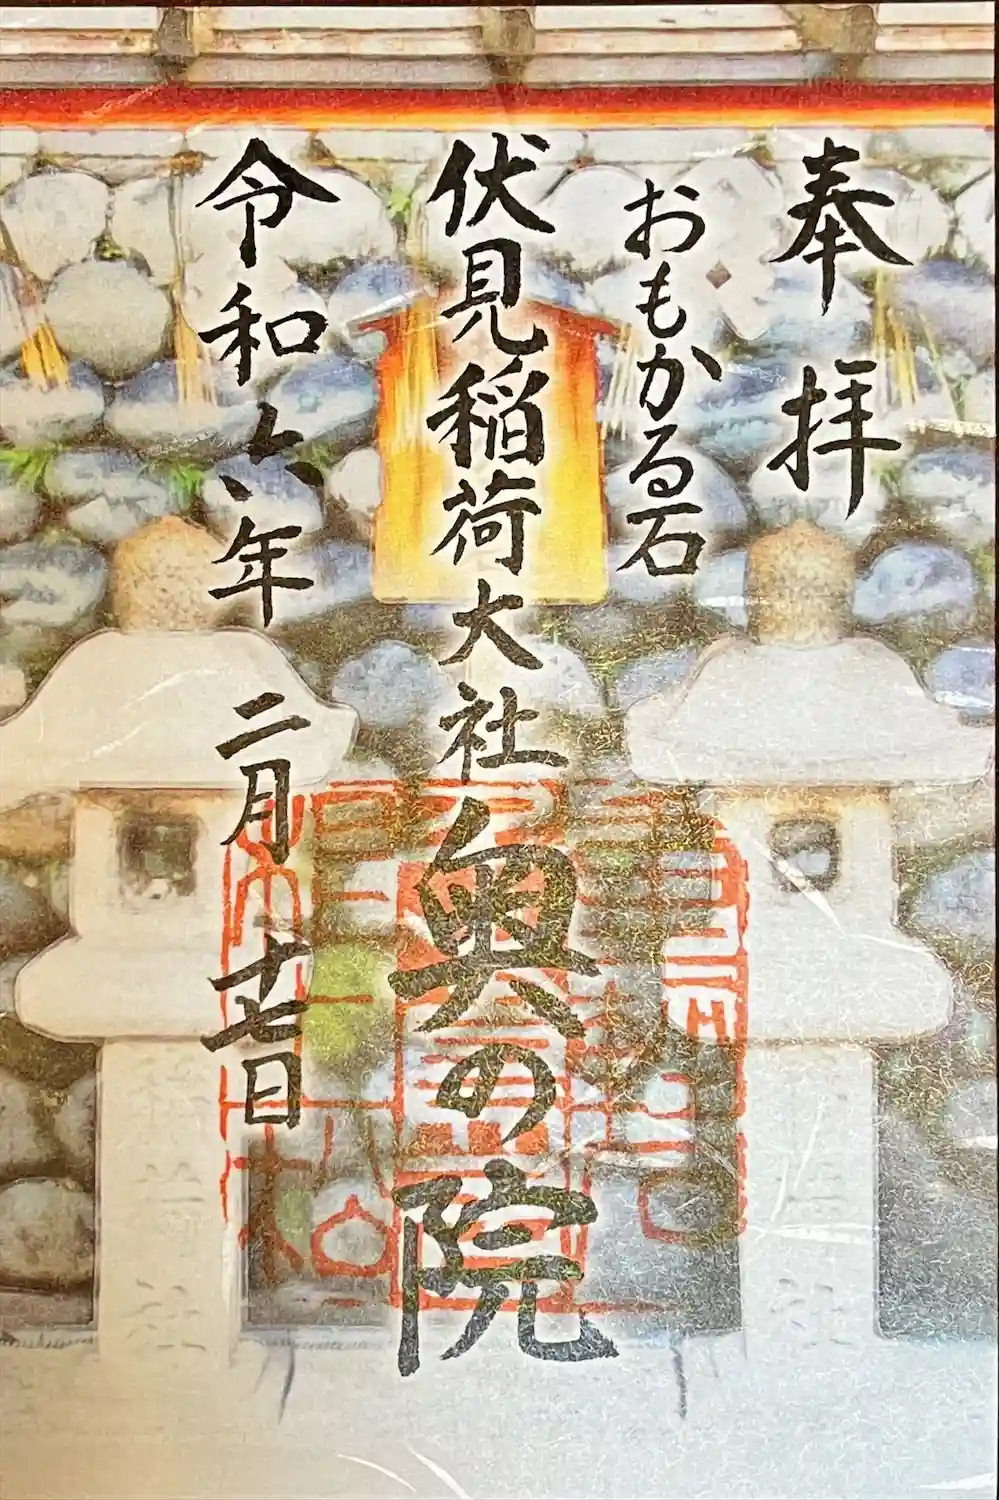 奉拝
おもかる石
伏見稲荷大社奥の院
令和六年 二月 十七日